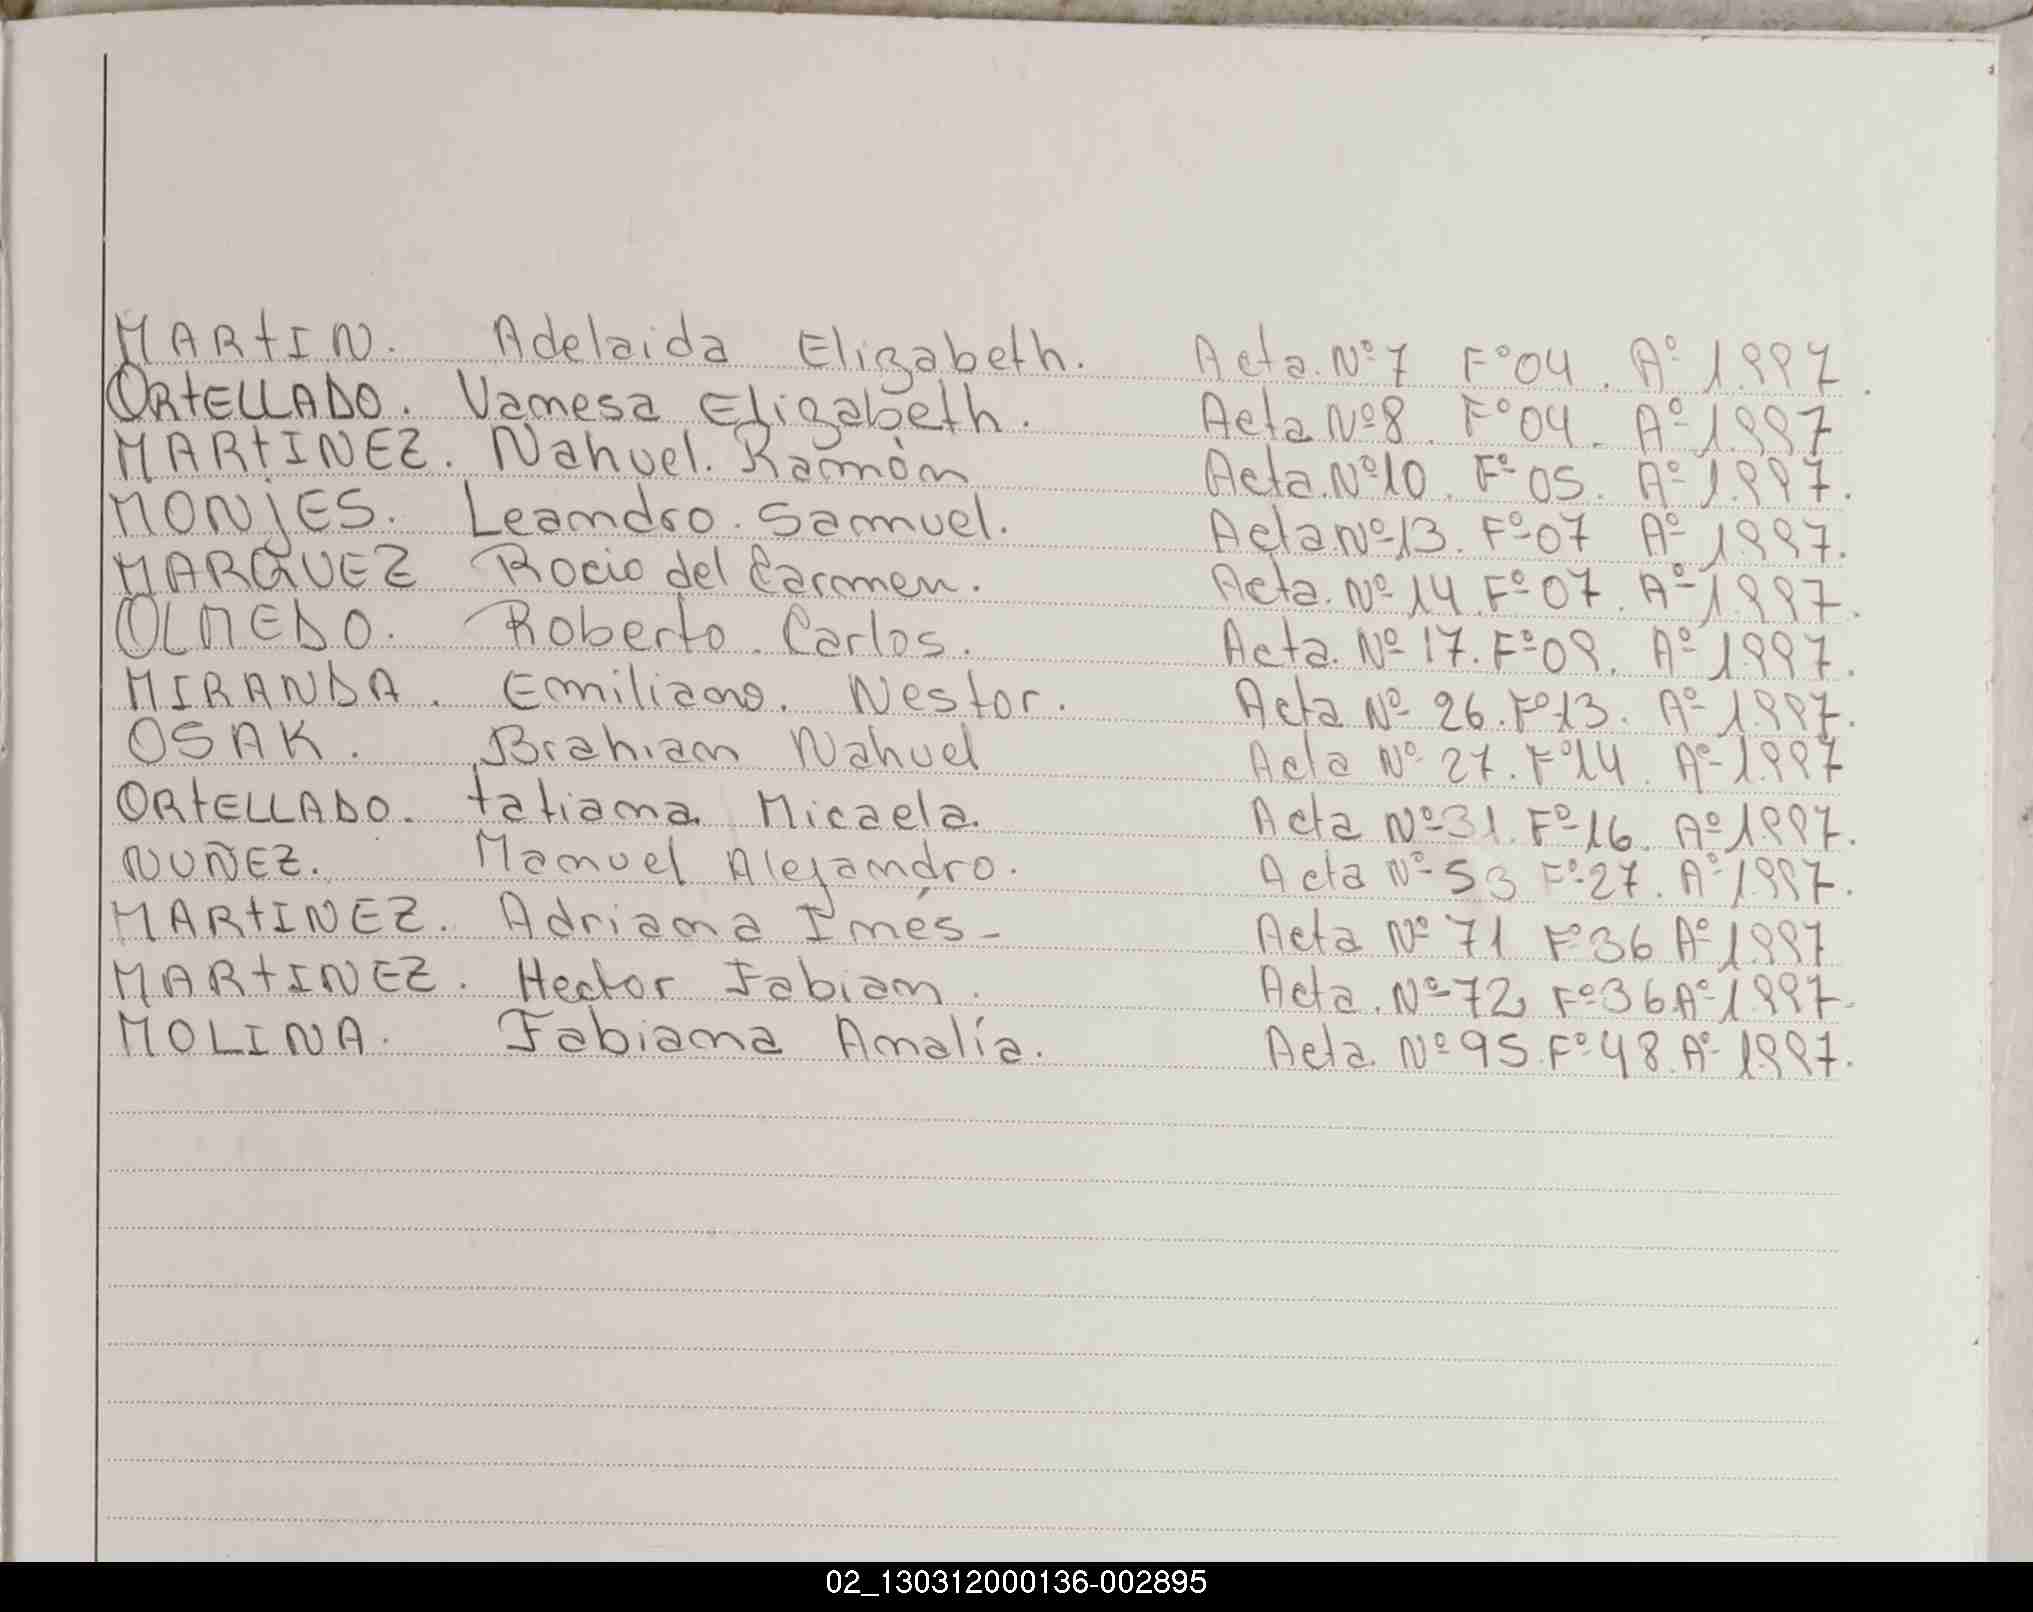 MARTIN. Adelaida Elizabeth. Acta. Nº 7 Fº 04. Aº 1.997.
ORTELLADO. Vanesa Elizabeth. Acta Nº 8. Fº 04. Aº 1.997
MARTINEZ. Nahuel. Ramón Acta. Nº 10. Fº 05. Aº 1.997.
MONJES. Leandro. Samuel. Acta Nº 13. Fº 07 Aº 1997.
MARQUEZ Rocio del Carmen. Acta. Nº 14. Fº 07. Aº 1.997.
OLMEDO. Roberto. Carlos. Acta. Nº 17. Fº 09. Aº 1.997.
MIRANDA. Emiliano. Nestor. Acta Nº 26. Fº 13. Aº 1.997.
OSAK. Brahian Nahuel Acta Nº 27. Fº 14. Aº 1.997
ORTELLADO. Tatiana. Micaela. Acta Nº 31. Fº 16. Aº 1.997.
NUÑEZ. Manuel Alejandro. Acta Nº 53 Fº 27. Aº 1.997.
MARTINEZ. Adriana Inés - Acta Nº 71 Fº 36 Aº 1.997
MARTINEZ. Hector Fabian. Acta. Nº 72 Fº 36 Aº 1.997.
MOLINA. Fabiana Amalía. Acta. Nº 95. Fº 48. Aº 1.997.
02_130312000136-002895